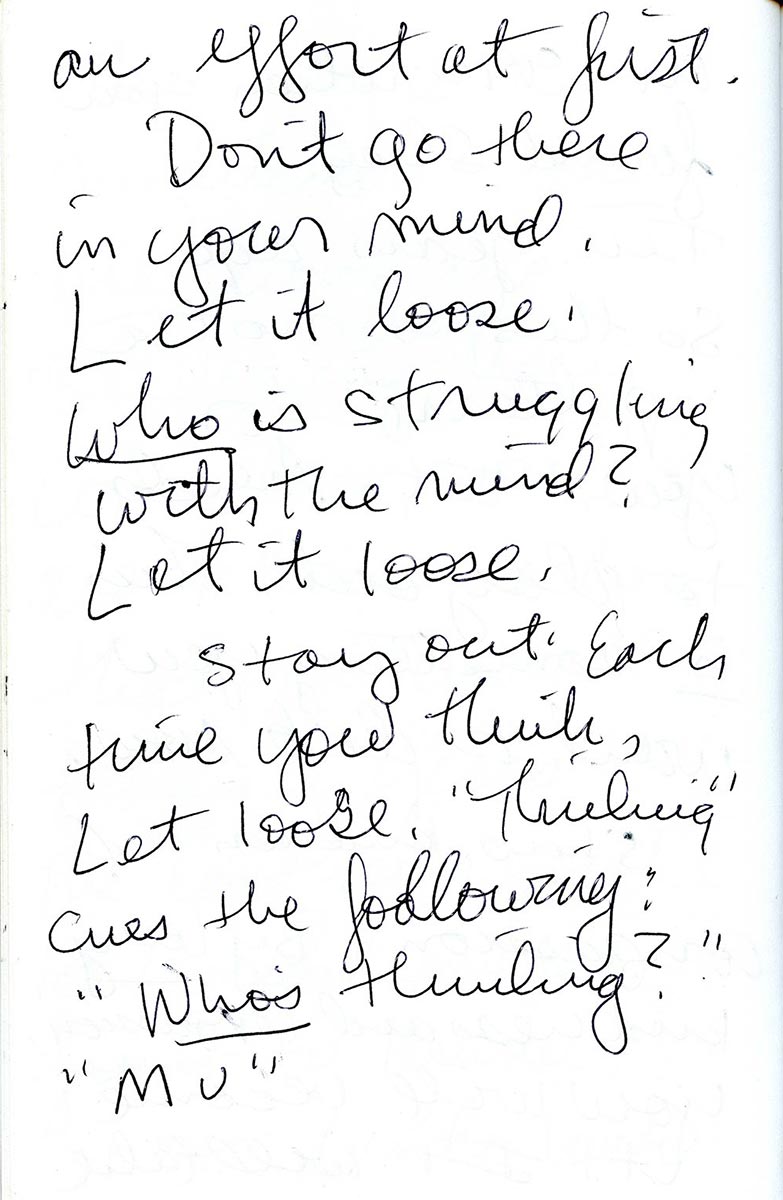 an effort at first.
Don't go there
in your mind.
Let it loose.
Who is struggling
with the mind?
Let it loose.
Stay out. Each
time you think,
Let loose. "Thinking"
cues the following:
"Who's thinking?"
"MU"